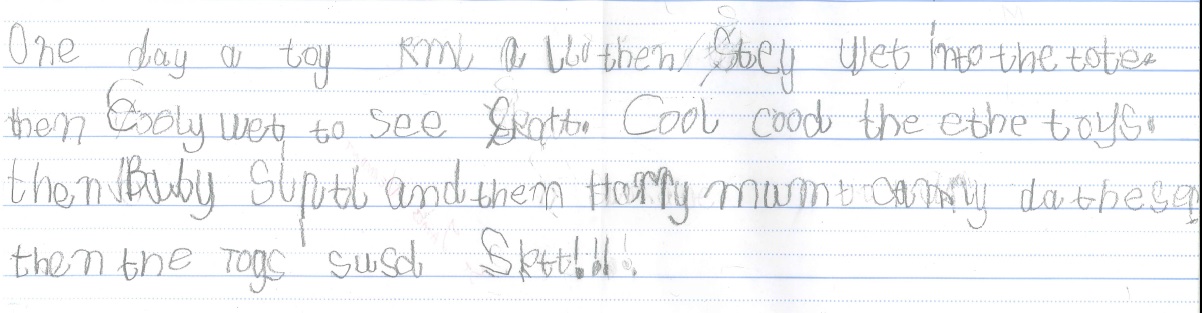 One day a toy a then Stey wet into the tote.
then Cooly wet to see Cool cood the ethe toys.
then Baby and them Harry mum da these
then the Togs susd Sptt!!!